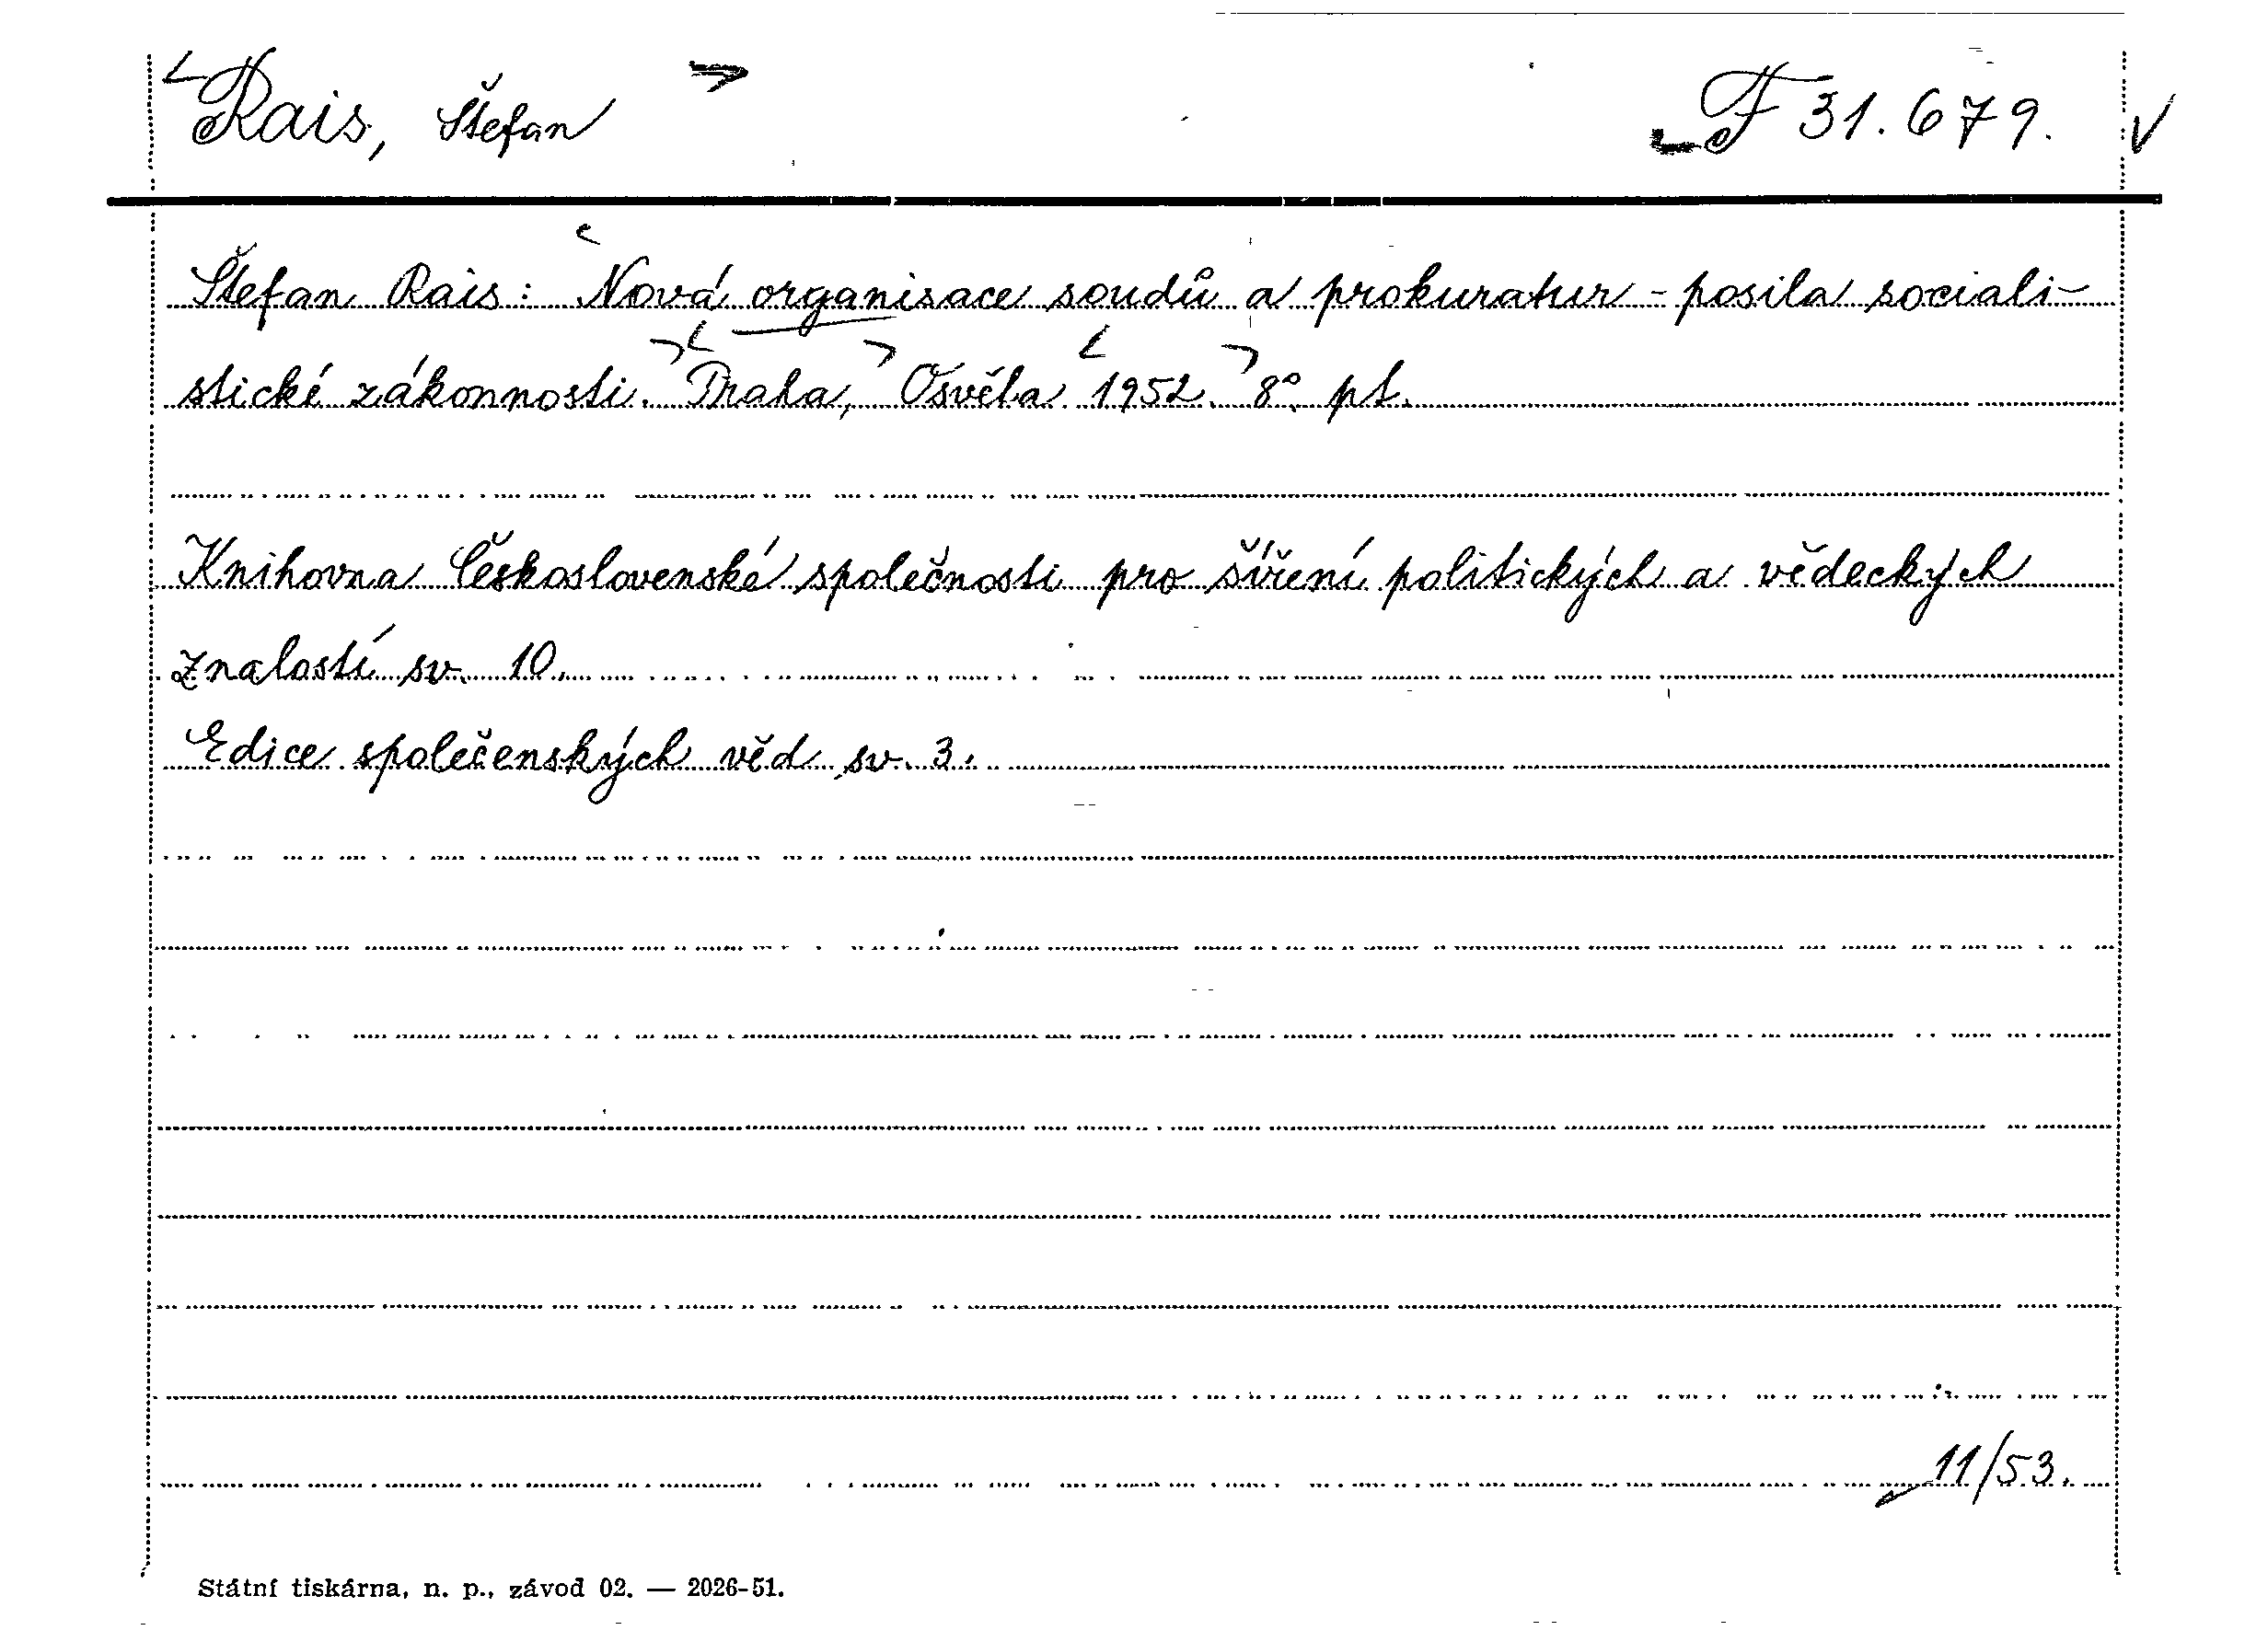 Rais, Štefan F 31.679.
Štefan Rais: Nová organisace soudů a prokuratur - posila sociali-
stické zákonnosti. Praha, Osvěta 1952. 8°. pt.
Knihovna Československé společnosti pro šíření politických a vědeckých
znalostí sv. 10.
Edice společenských věd sv. 3.
11/53.
Státní tiskárna, n. p., závod 02. — 2026-51.